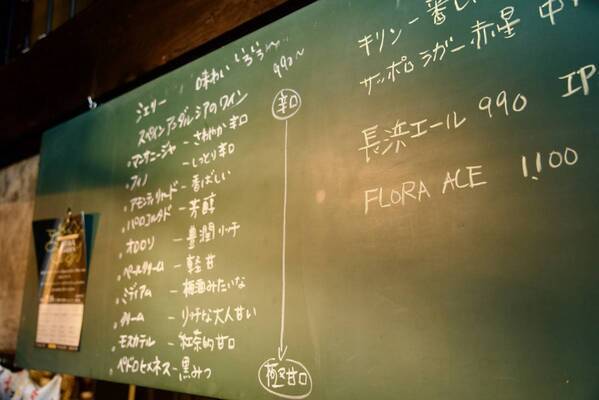 シェリー 味わい いろいろ〜 990〜
スペインアンダルシアのワイン
・マンサニージャ - さわやか辛口
・フィノ - しっとり辛口
・アモンティリャード - 香ばしい
・パロコルタド - 芳醇
・オロロソ - 豊潤リッチ
・ペールクリーム - 軽甘
・ミディアム - 梅酒みたいな
・クリーム - リッチな大人甘い
・モスカテル - 紅茶的甘口
・ペドロヒメネス - 黒みつ
辛口
極甘口
キリン 一番し
サッポロ ラガー 赤星 中
長浜エール 990 IP
FLORA ACE 1,100